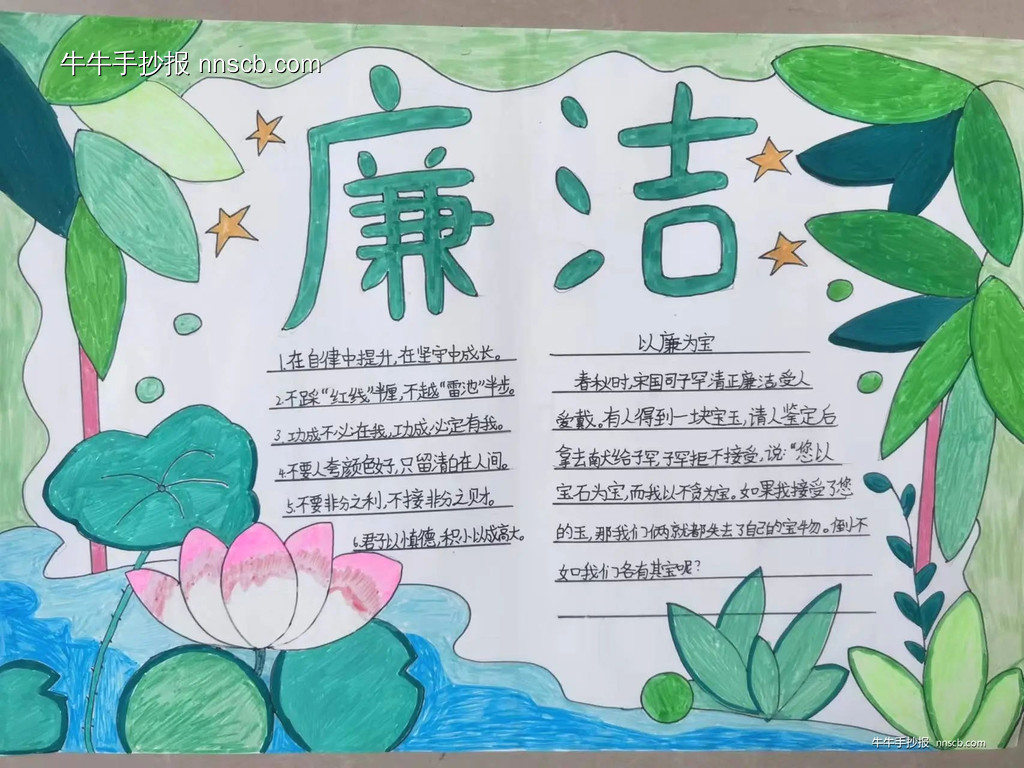 牛牛手抄报 nnscb.com
廉洁
1.在自律中提升,在坚守中成长。
2.不踩“红线”半厘,不越“雷池”半步。
3.功成不必在我,功成必定有我。
4.不要人夸颜色好,只留清白在人间。
5.不要非分之利,不接非分之财。
6.君子以慎德,积小以成高大。
以廉为宝
春秋时,宋国司子罕清正廉洁,受人
爱戴。有人得到一块宝玉,请人鉴定后
拿去献给子罕,子罕拒不接受,说:“您以
宝石为宝,而我以不贪为宝。如果我接受了您
的玉,那我们俩就都失去了自己的宝物。倒不
如我们各有其宝呢?
牛牛手抄报 nnscb.com